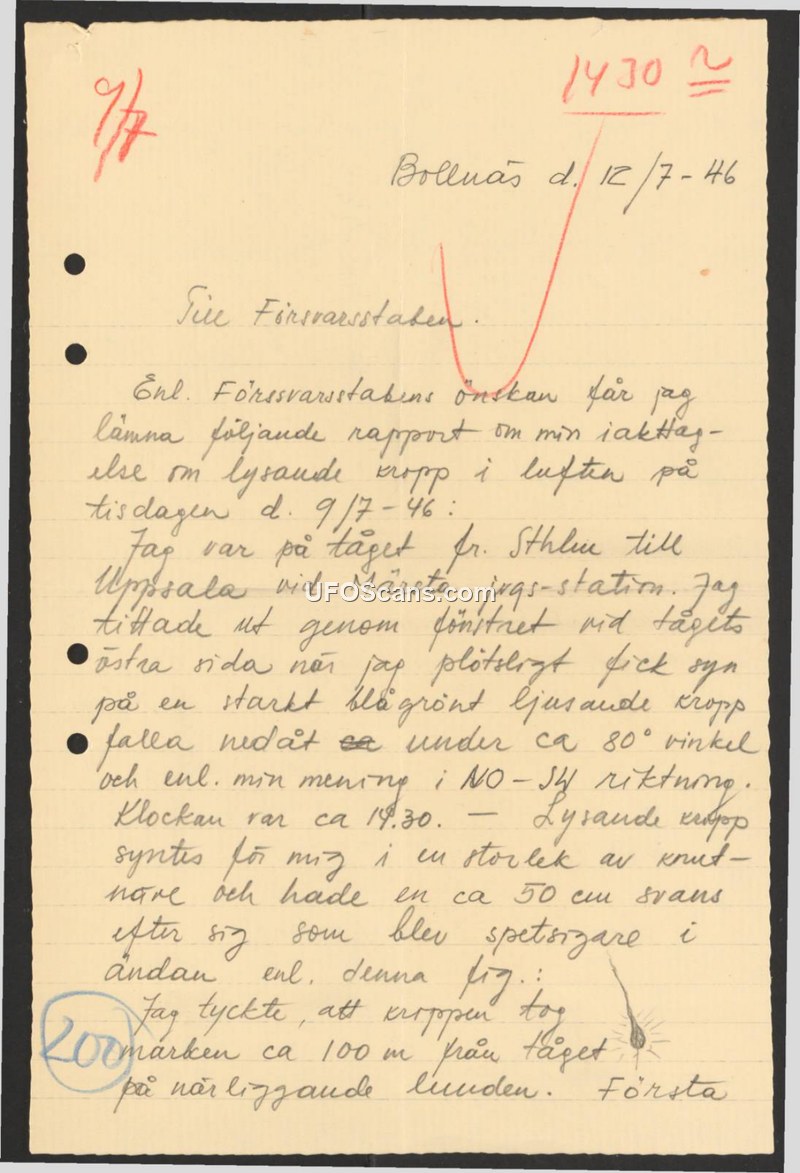 9/7
1430
Bollnäs d. 12/7-46
Till Försvarsstaben.
Enl. Förssvarsstabens önskan får jag
lämna följande rapport om min iakttag-
else om lysande kropp i luften på
tisdagen d. 9/7-46:
Jag var på tåget fr. Sthlm till
Uppsala vid Märsta jvgs-station. Jag
UFOScans.com
tittade ut genom fönstret vid tågets
östra sida när jag plötsligt fick syn
på en starkt blågrönt ljusande kropp
falla nedåt ca under ca 80° vinkel
och enl. min mening i NO-SW riktning.
Klockan var ca 14.30. — Lysande kropp
syntes för mig i en storlek av knut-
näve och hade en ca 50 cm svans
efter sig som blev spetsigare i
ändan enl. denna fig.:
Jag tyckte, att kroppen tog
200
marken ca 100 m från tåget
på närliggande lunden. Första